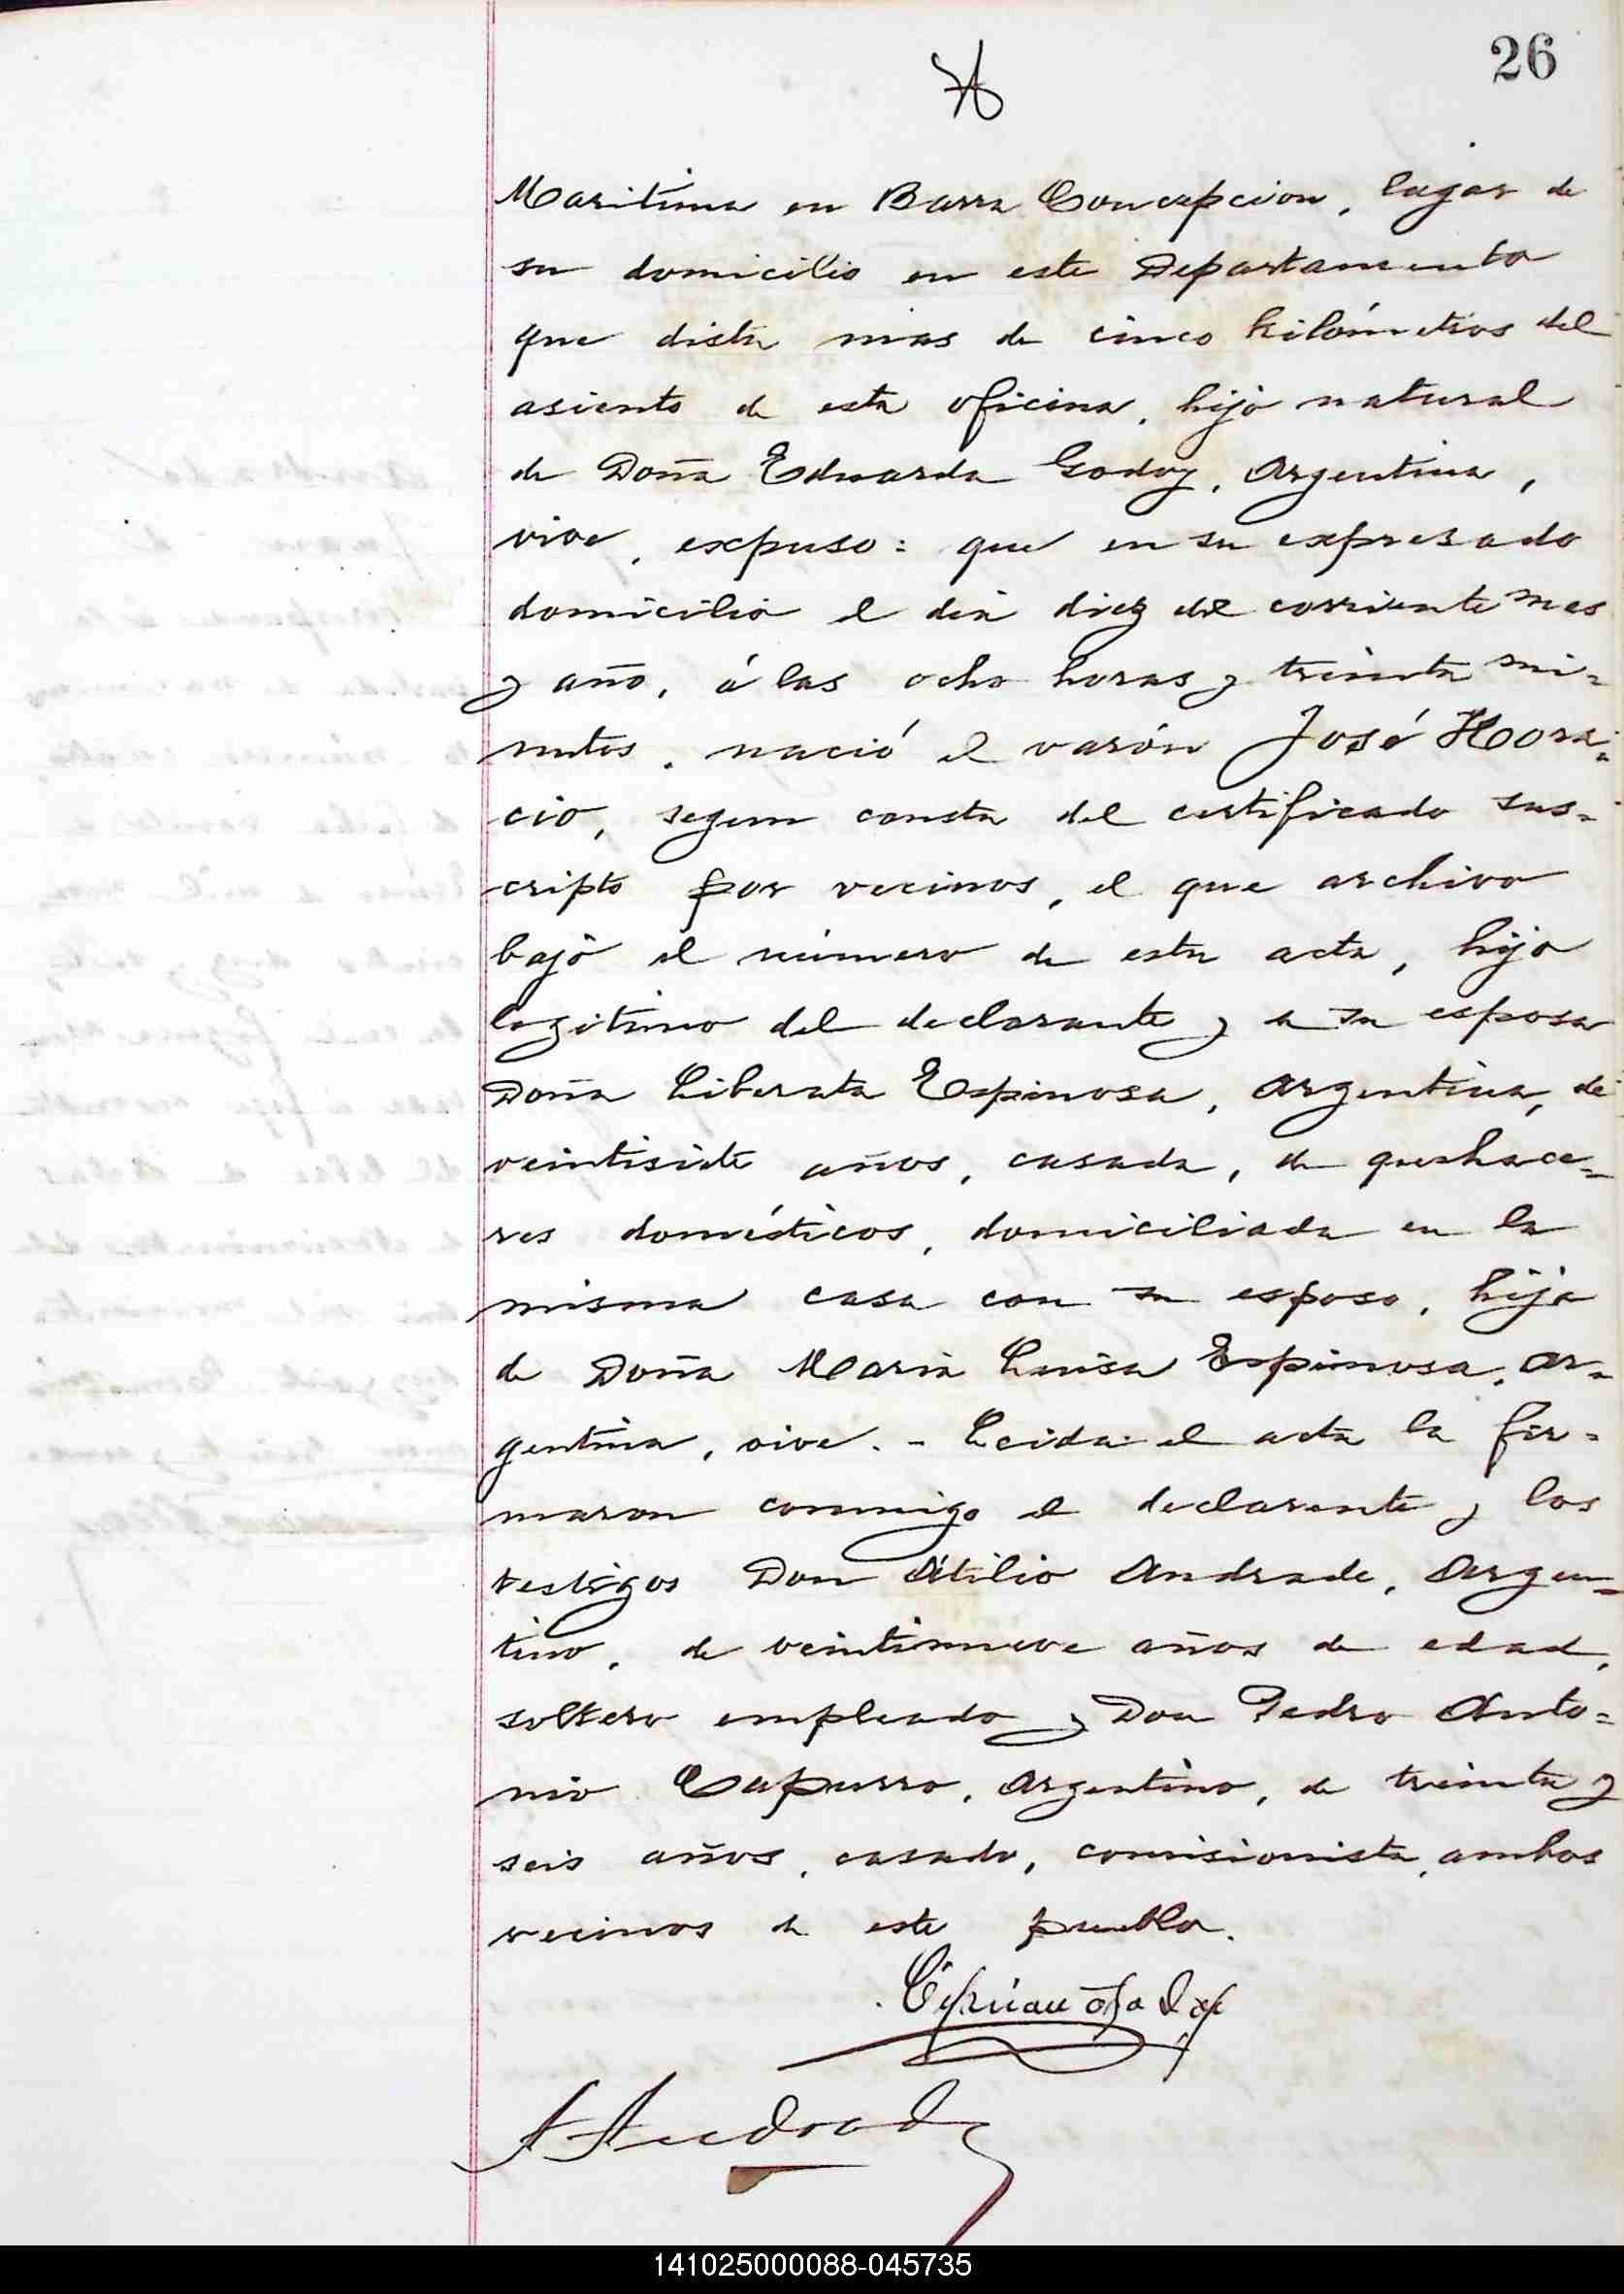 26
Maritima en Barra Concepcion, lugar de
su domicilio en este Departamento
que dista mas de cinco kilómetros del
asiento de esta oficina, hijo natural
de Doña Eduarda Godoy, Argentina,
vive, expuso: que en su expresado
domicilio el dia diez del corriente mes
y año, á las ocho horas y treinta mi=
nutos, nació el varón José Hora=
cio, segun consta del certificado sus=
cripto por vecinos, el que archivo
bajo el número de esta acta, hijo
legitimo del declarante y de su esposa
Doña Liberata Espinosa, Argentina, de
veintisiete años, casada, de quehace=
res domésticos, domiciliada en la
misma casa con su esposo, hija
de Doña Maria Luisa Espinosa, Ar=
gentina, vive. - Leida el acta la fir=
maron conmigo el declarante y los
testigos Don Atilio Andrade, Argen=
tino, de veintinueve años de edad,
soltero empleado y Don Pedro Anto=
nio Capurro, Argentino, de treinta y
seis años, casado, comisionista, ambos
vecinos de este pueblo.
A Andrade
141025000088-045735